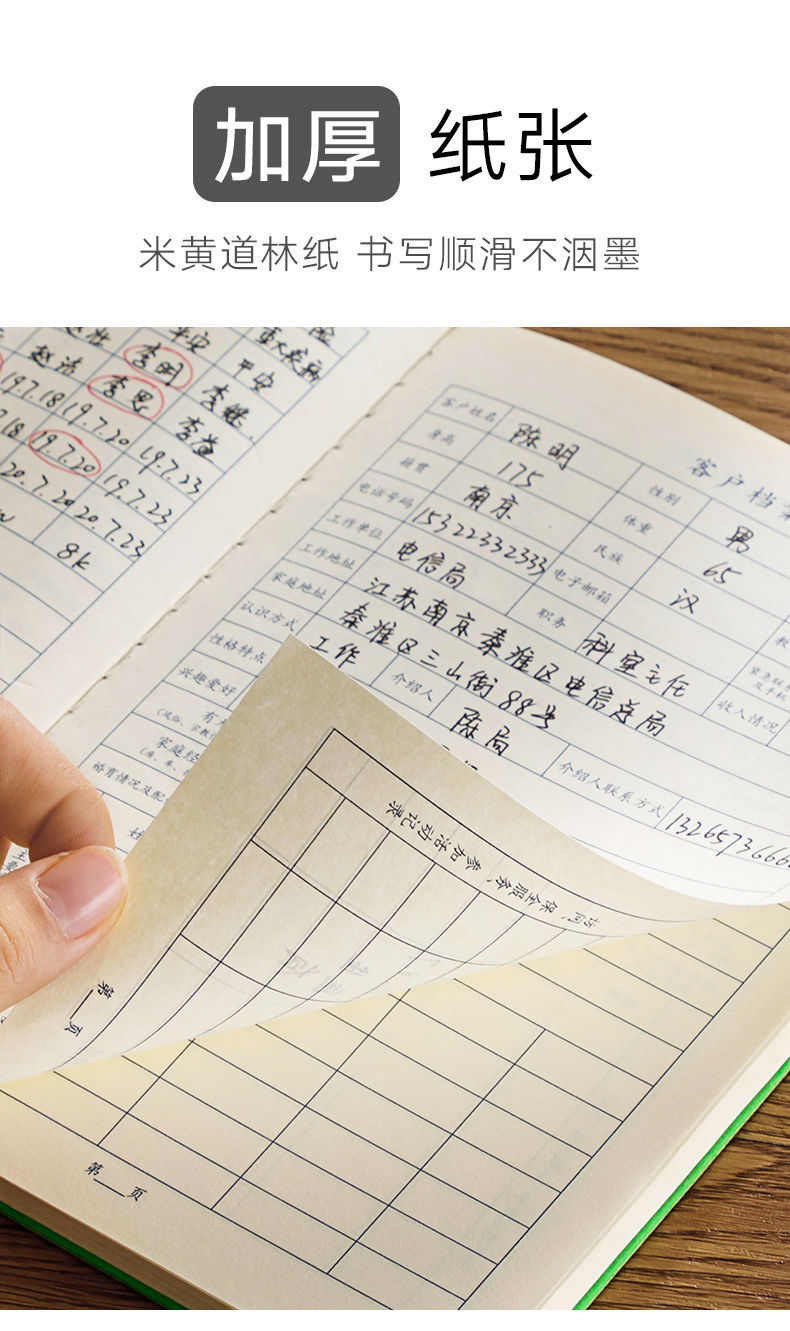 加厚 纸张
米黄道林纸 书写顺滑不洇墨
李明 平安 重大疾病 险
赵浩 李思 甲安
19.7.18 19.7.20 李继
19.7.20 19.7.23 李益
20.7.20 19.7.23
20.7.23
8k
客户档案
客户姓名 陈明 性别 男
身高 175 体重 65
籍贯 南京 民族 汉
电话号码 15322332333 电子邮箱
工作单位 电信局 职务 科室主任
工作地址 江苏南京秦淮区电信总局
家庭地址 秦淮区三山街88号 收入情况
认识方式 工作 介绍人 陈局 介绍人联系方式
性格特点
兴趣爱好
家庭经
婚育情况及配
访问、保全服务、参加活动记录
第__页
第__页